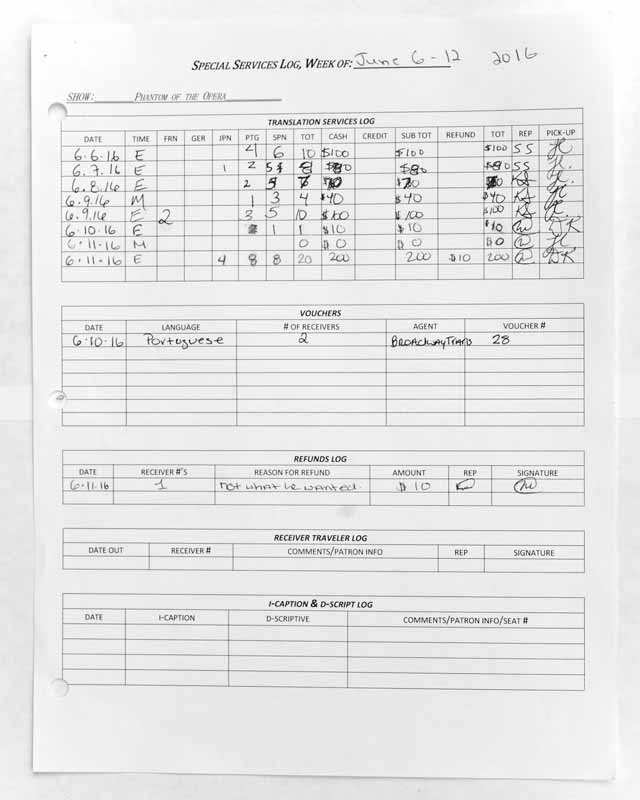 SPECIAL SERVICES LOG, WEEK OF: June 6-12 2016
SHOW: PHANTOM OF THE OPERA
TRANSLATION SERVICES LOG
DATE TIME FRN GER JPN PTG SPN TOT CASH CREDIT SUB TOT REFUND TOT REP PICK-UP
6.6.16 E 4 6 10 $100 $100 $100 SS
6.7.16 E 1 2 8 $80 $80 $80 SS
6.8.16 E 2 5 7
6.9.16 M 1 3 4 $40 $40 $40
6.9.16 E 2 3 5 10 $100 $100 $100
6.10.16 E 1 1 $10 $10 $10 DK
6.11.16 M 0 $0 $0 $0
6.11.16 E 4 8 8 20 200 200 $10 200 DK
VOUCHERS
DATE LANGUAGE # OF RECEIVERS AGENT VOUCHER #
6.10.16 Portoguese 2 BROADWAYTRANS 28
REFUNDS LOG
DATE RECEIVER #'S REASON FOR REFUND AMOUNT REP SIGNATURE
6.11.16 1 not what he wanted. $10
RECEIVER TRAVELER LOG
DATE OUT RECEIVER # COMMENTS/PATRON INFO REP SIGNATURE
I-CAPTION & D-SCRIPT LOG
DATE I-CAPTION D-SCRIPTIVE COMMENTS/PATRON INFO/SEAT #